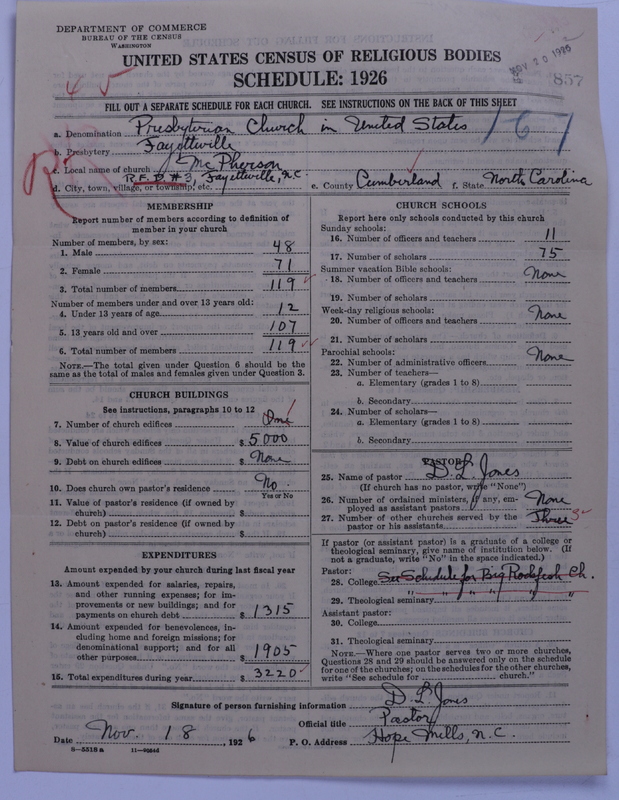 DEPARTMENT OF COMMERCE
BUREAU OF THE CENSUS
WASHINGTON
NOV 20 1926
857
UNITED STATES CENSUS OF RELIGIOUS BODIES
SCHEDULE: 1926
FILL OUT A SEPARATE SCHEDULE FOR EACH CHURCH. SEE INSTRUCTIONS ON THE BACK OF THIS SHEET
a. Denomination Presbyterian Church in United States
167
b. Presbytery Fayetteville
c. Local name of church McPherson
d. City, town, village, or township, etc. R.F.D. #3, Fayetteville, N.C. e. County Cumberland f. State North Carolina
MEMBERSHIP
Report number of members according to definition of member in your church
Number of members, by sex:
1. Male 48
2. Female 71
3. Total number of members 119
Number of members under and over 13 years old:
4. Under 13 years of age 12
5. 13 years old and over 107
6. Total number of members 119
NOTE.—The total given under Question 6 should be
same as the total of males and females given under Question 3.
CHURCH BUILDINGS
See instructions, paragraphs 10 to 12
7. Number of church edifices One
8. Value of church edifices $ 5000
9. Debt on church edifices $ None
10. Does church own pastor's residence No
Yes or No
11. Value of pastor's residence (if owned by
church) $
12. Debt on pastor's residence (if owned by
church) $
EXPENDITURES
Amount expended by your church during last fiscal year
13. Amount expended for salaries, repairs,
and other running expenses; for im-
provements or new buildings; and for
payments on church debt $ 1315
14. Amount expended for benevolences, in-
cluding home and foreign missions; for
denominational support; and for all
other purposes $ 1905
15. Total expenditures during year $ 3220
CHURCH SCHOOLS
Report here only schools conducted by this church
Sunday schools:
16. Number of officers and teachers 11
17. Number of scholars 75
Summer vacation Bible schools:
18. Number of officers and teachers None
19. Number of scholars
Week-day religious schools:
20. Number of officers and teachers None
21. Number of scholars
Parochial schools:
22. Number of administrative officers None
23. Number of teachers—
a. Elementary (grades 1 to 8)
b. Secondary
24. Number of scholars—
a. Elementary (grades 1 to 8)
b. Secondary
PASTOR
25. Name of pastor D. L. Jones
(If church has no pastor, write "None")
26. Number of ordained ministers, if any, em-
ployed as assistant pastors None
27. Number of other churches served by the
pastor or his assistants Three 3
If pastor (or assistant pastor) is a graduate of a college or
theological seminary, give name of institution below. (If
not a graduate, write "No" in the space indicated.)
Pastor:
28. College See Schedule for Big Rockfish Ch.
29. Theological seminary " " " " " "
Assistant pastor:
30. College
31. Theological seminary
NOTE.—Where one pastor serves two or more churches,
Questions 28 and 29 should be answered only on the schedule
for one of the churches; on the schedules for the other churches,
write "See schedule for church."
Signature of person furnishing information D. L. Jones
Official title Pastor
Date Nov. 18, 1926 P. O. Address Hope Mills, N.C.
8-5518a